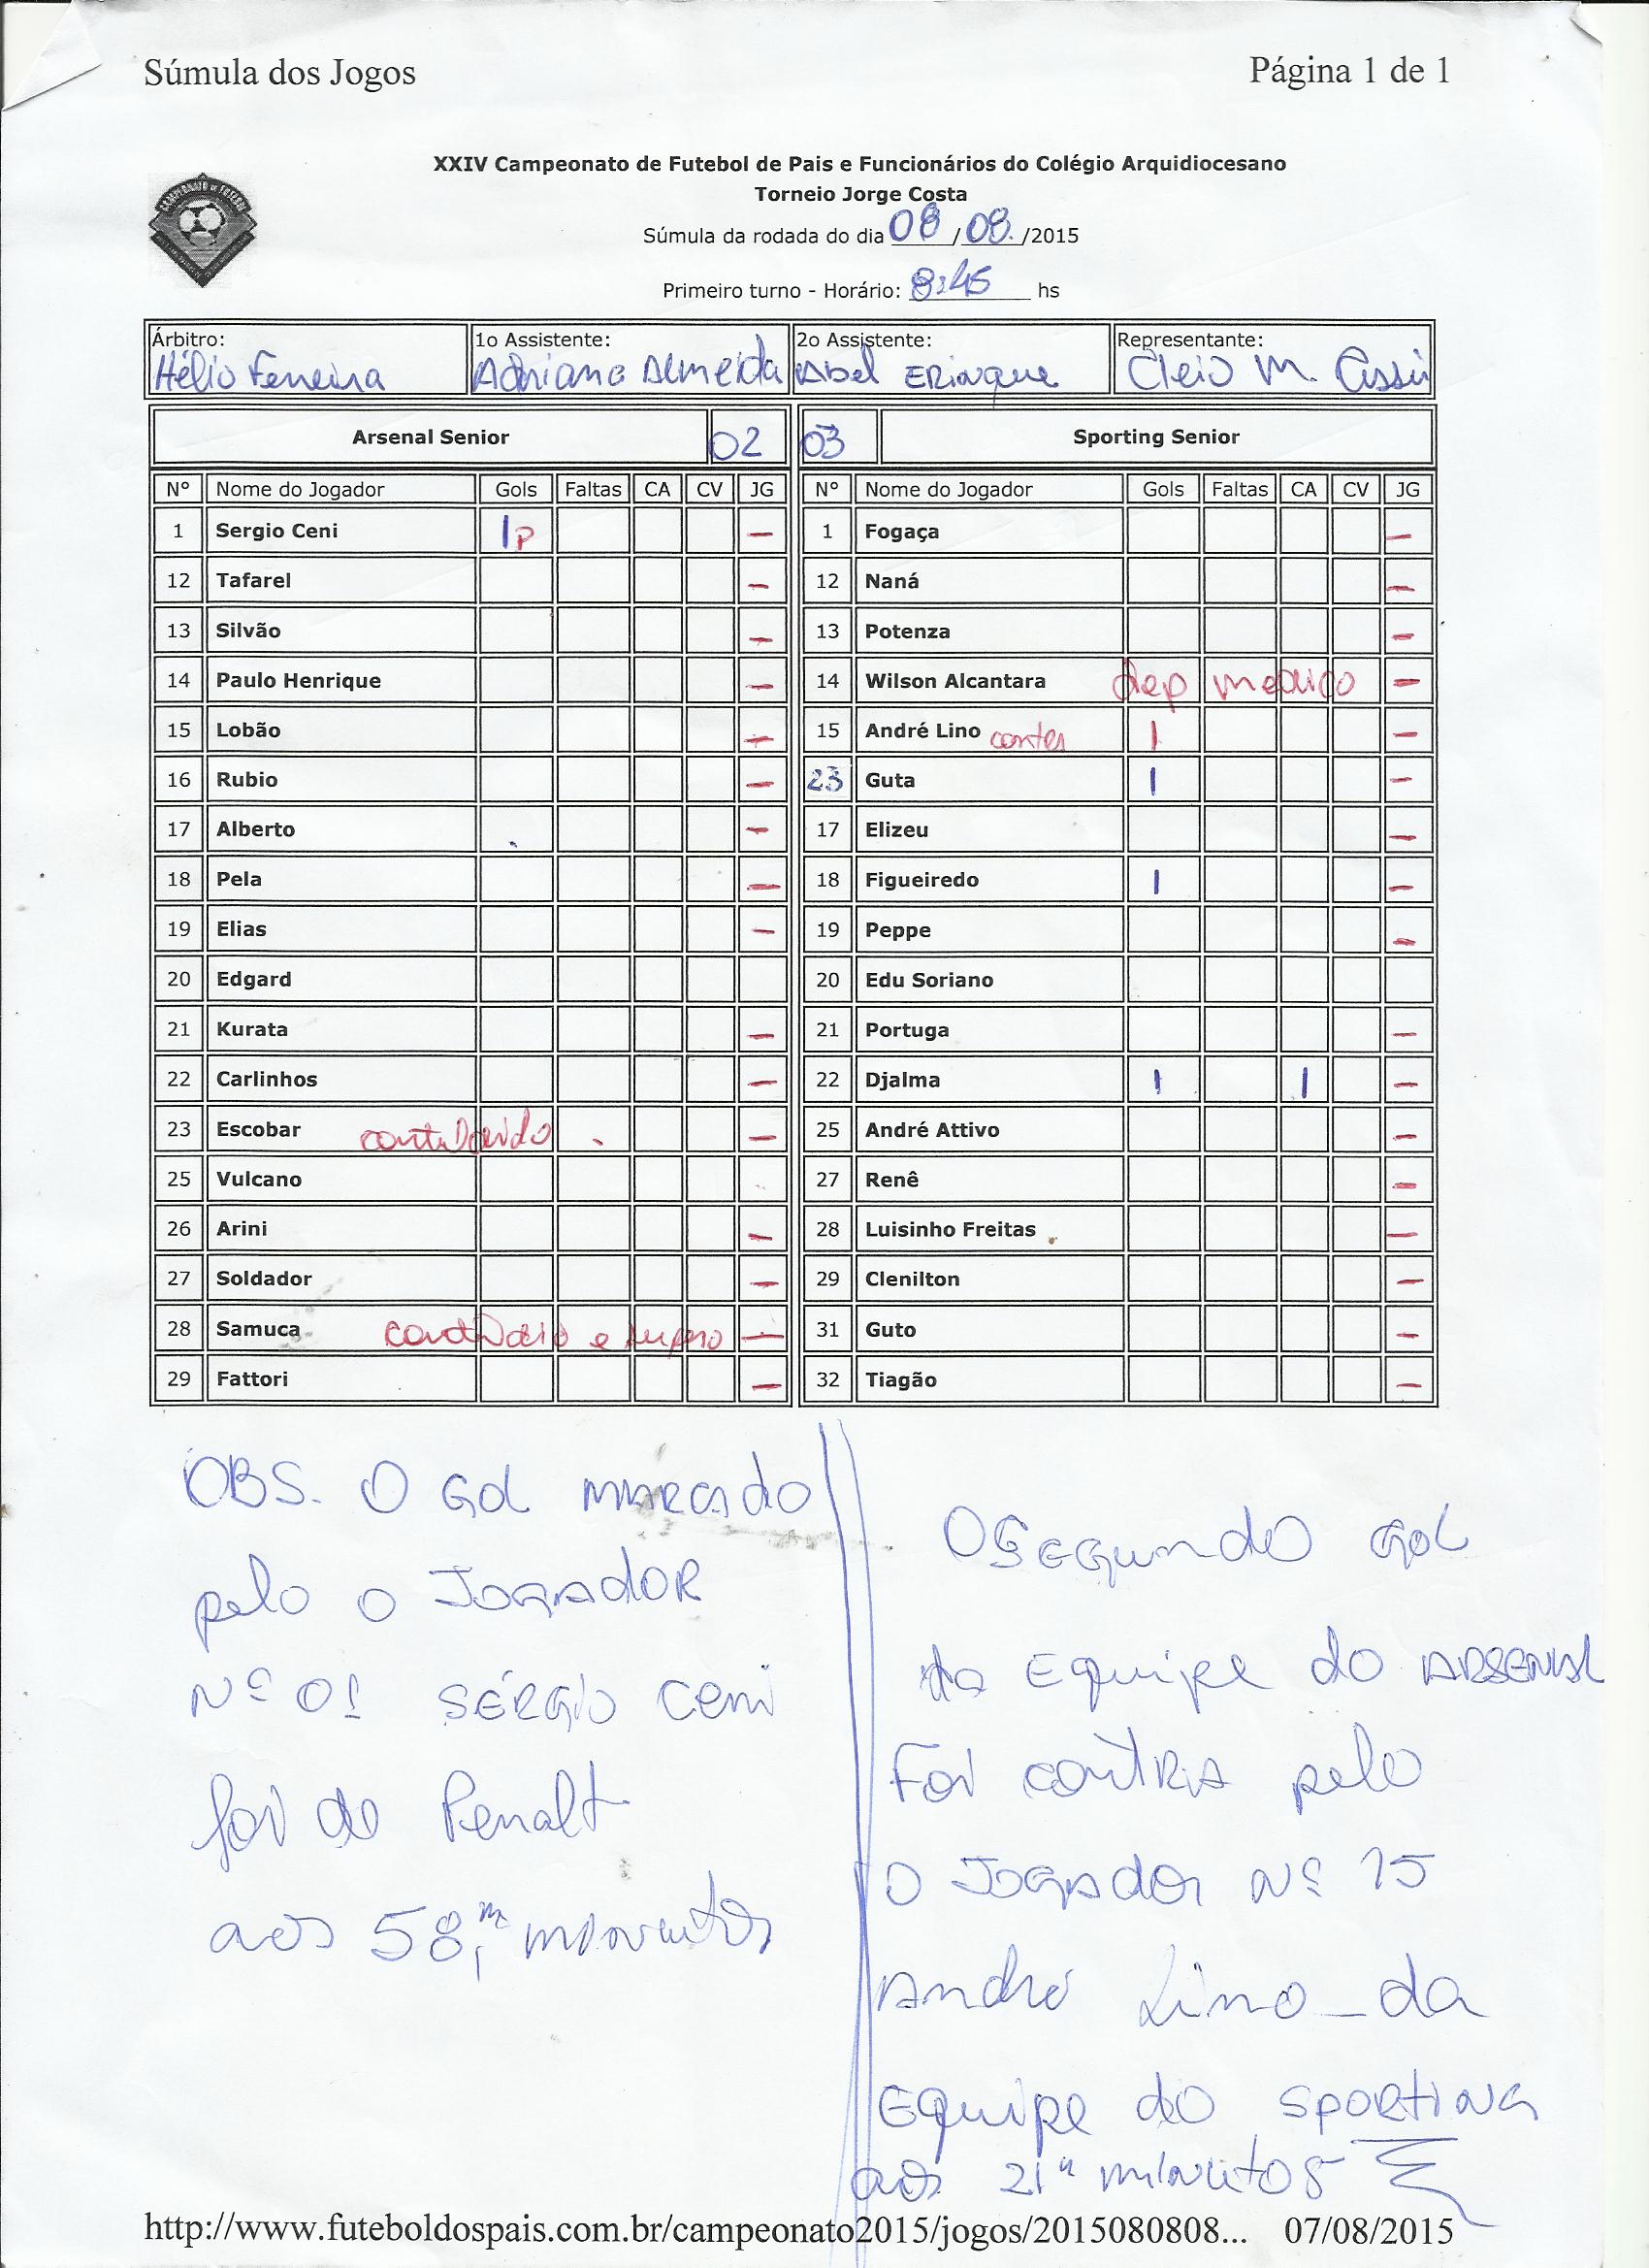 Súmula dos Jogos Página 1 de 1
XXIV Campeonato de Futebol de Pais e Funcionários do Colégio Arquidiocesano
Torneio Jorge Costa
Súmula da rodada do dia 08/08./2015
Primeiro turno - Horário: 8:45 hs
Árbitro: 1o Assistente: 2o Assistente: Representante:
Hélio Ferreira Adriano Almeida Abel Cleio M.
Arsenal Senior 02 03 Sporting Senior
Nº Nome do Jogador Gols Faltas CA CV JG Nº Nome do Jogador Gols Faltas CA CV JG
1 Sergio Ceni 1 P — 1 Fogaça —
12 Tafarel — 12 Naná —
13 Silvão — 13 Potenza —
14 Paulo Henrique — 14 Wilson Alcantara dep medico —
15 Lobão — 15 André Lino contra 1 —
16 Rubio — 23 Guta 1 —
17 Alberto — 17 Elizeu —
18 Pela — 18 Figueiredo 1 —
19 Elias — 19 Peppe —
20 Edgard 20 Edu Soriano
21 Kurata — 21 Portuga —
22 Carlinhos — 22 Djalma 1 1 —
23 Escobar contundido — 25 André Attivo —
25 Vulcano 27 Renê —
26 Arini — 28 Luisinho Freitas —
27 Soldador — 29 Clenilton —
28 Samuca e — 31 Guto —
29 Fattori — 32 Tiagão —
OBS. O Gol marcado
pelo o Jogador
Nº 01 Sérgio Ceni
foi de Penalt
aos 58,m minutos
O Segundo Gol
da Equipe do ARSENAL
Foi contra pelo
o Jogador Nº 15
André Lino - da
Equipe do Sporting
aos 21" minutos
http://www.futeboldospais.com.br/campeonato2015/jogos/2015080808... 07/08/2015